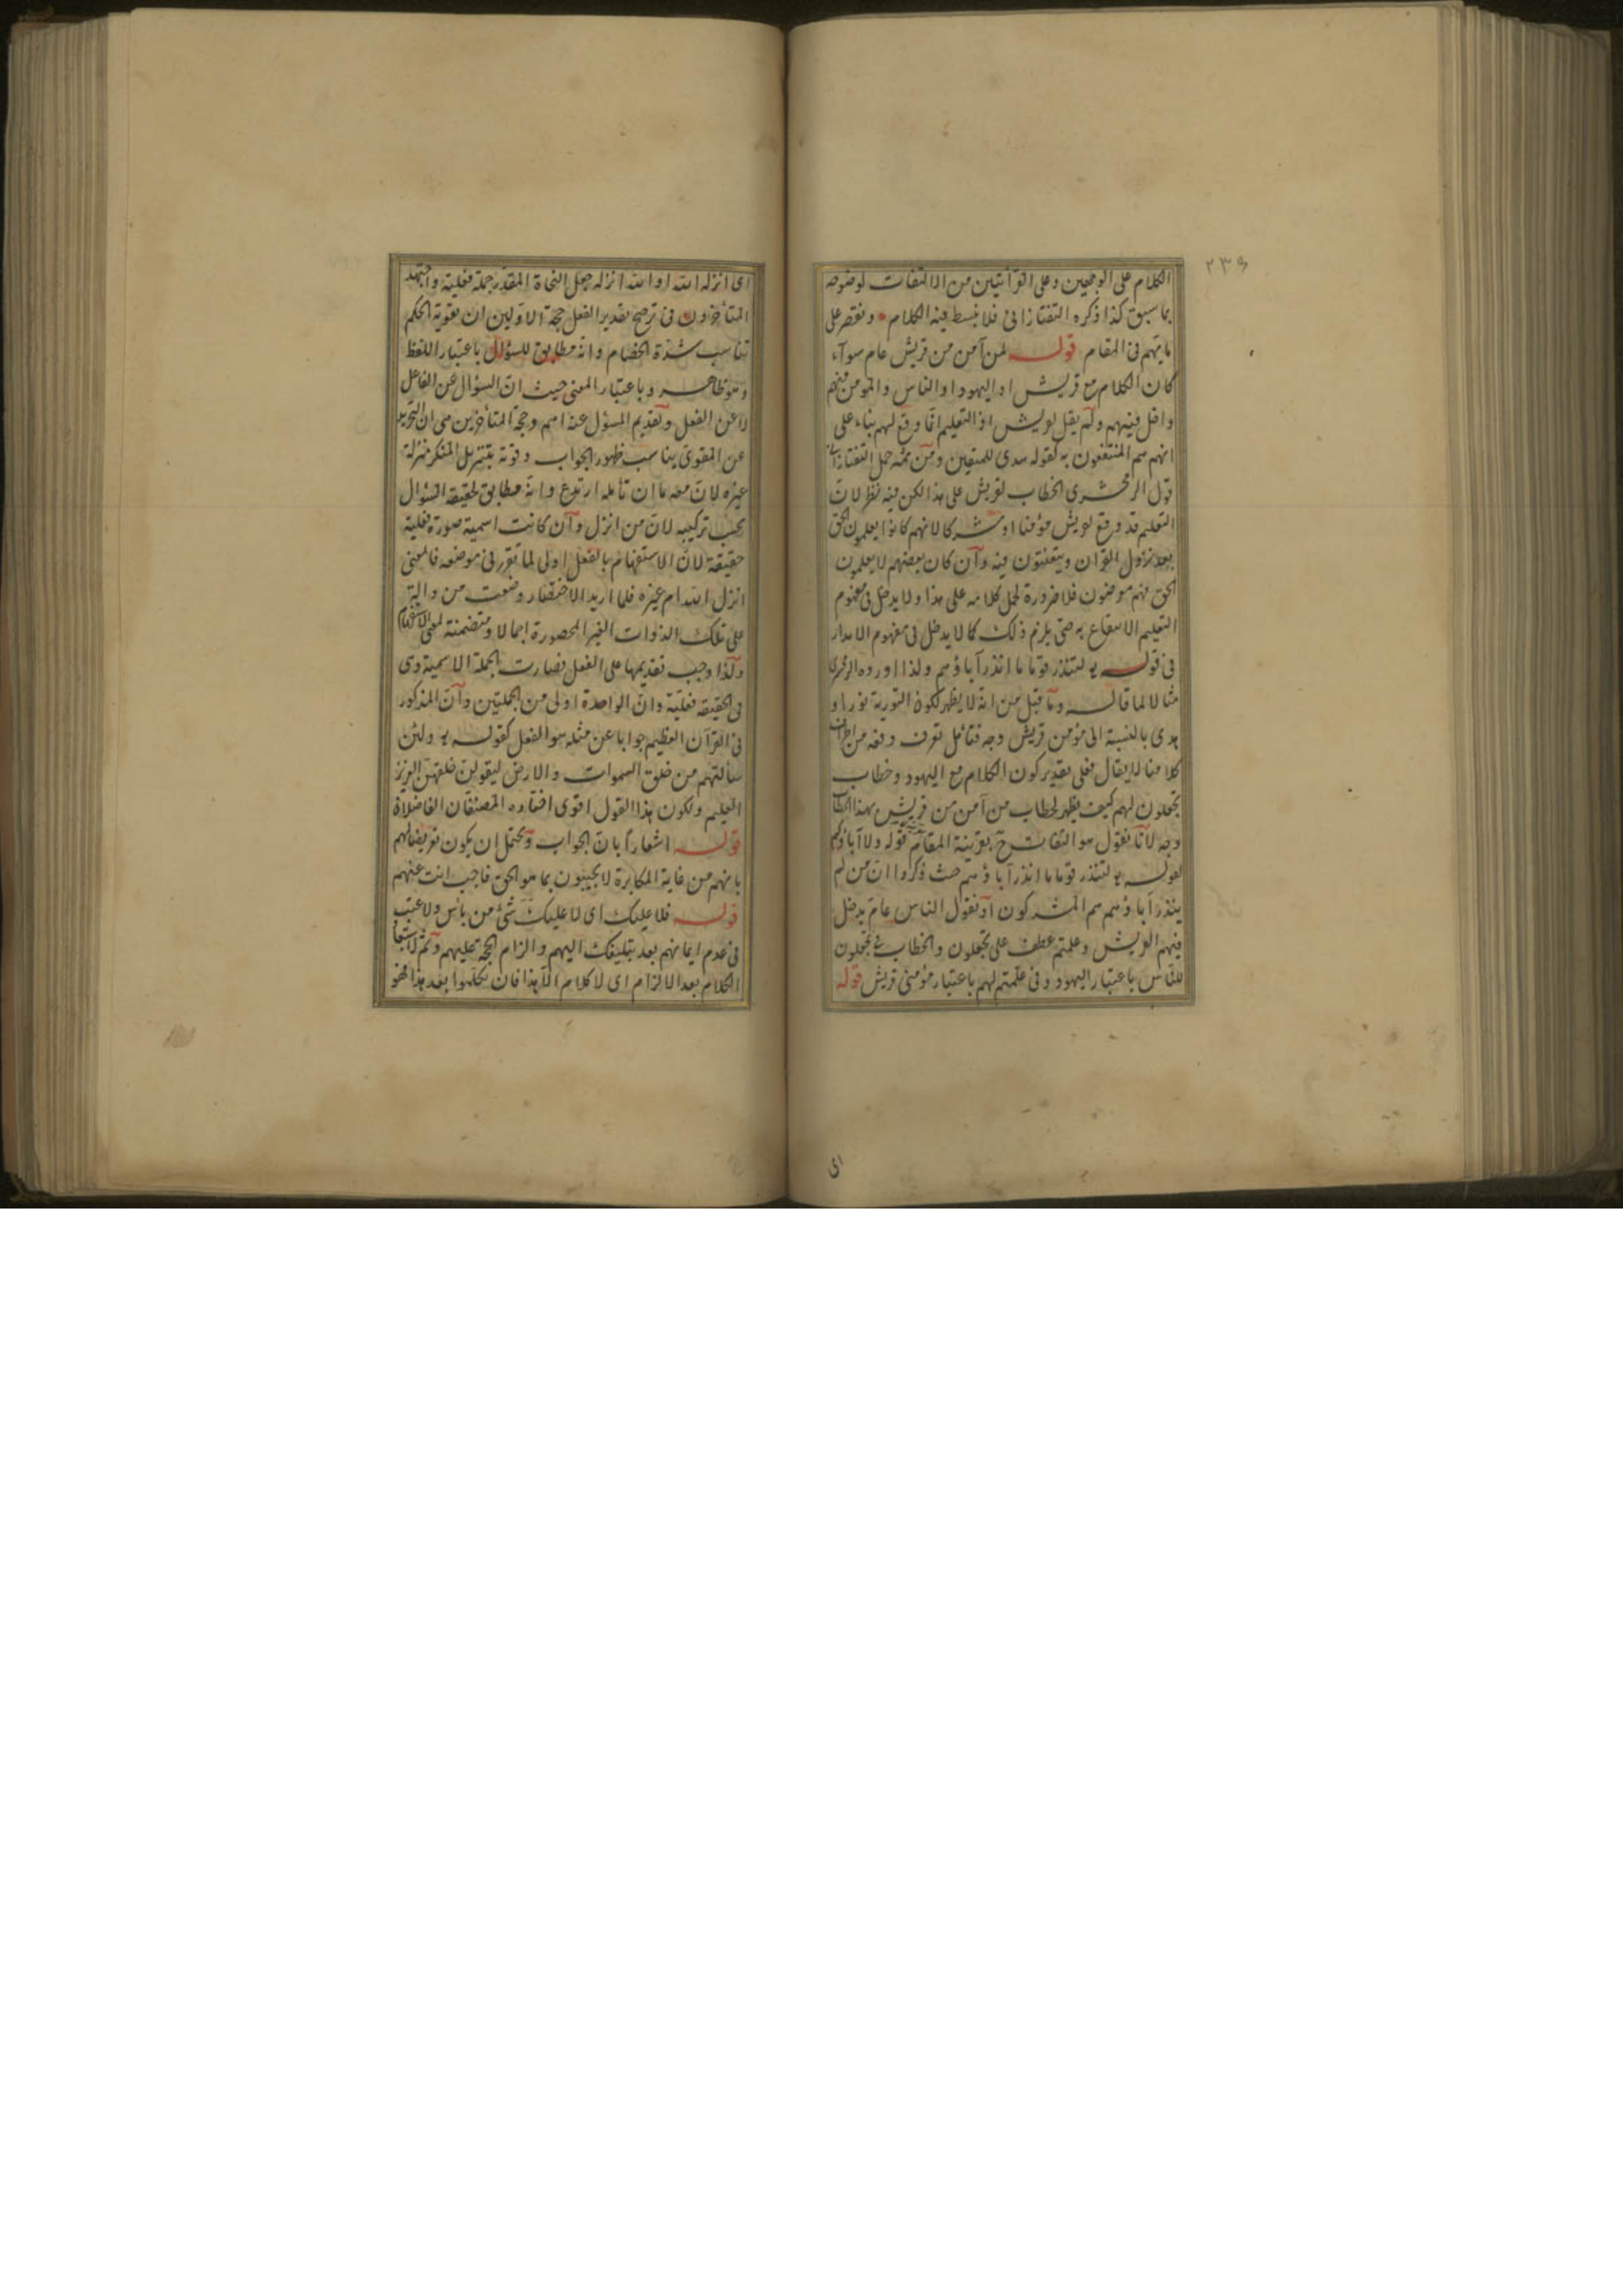 ٢٣٩
الكلام على الوجهين وعلى القرائتين من الالتفات لوضوحه
بما سبق كذا ذكره التفتازانى فلا نبسط فيه الكلام ونقتصر على
ما يهم فى المقام قوله لمن آمن من قريش عام سوآء
كان الكلام مع قريش او اليهود او الناس والمؤمن منهم
داخل فيهم ولم يقل لقريش اذ التعليم انما وقع لهم بناء على
انهم هم المنتفعون به كقوله هدى للمتقين ومن ثمه حمل التفتازانى
قول الزمخشرى الخطاب لقريش على هذا لكن فيه نظر لان
التعليم قد وقع لقريش مؤمنا او مشركا لانهم كانوا يعلمون الحق
بعد نزول القرآن ويتعنتون فيه وان كان بعضهم لا يعلمون
الحق فهم معرضون فلا ضرورة لحمل كلامه على هذا ولا يدخل فى مفهوم
التعليم الانتفاع به حتى يلزم ذلك كما لا يدخل فى مفهوم الانذار
فى قوله لتنذر قوما ما انذر آباؤهم ولذا اورده الزمخشرى
مثالا لما قاله وما قيل من انه لا يظهر لكون التورية نورا و
هدى بالنسبة الى مؤمن قريش وجه فتأمل تعرف دفعه من اطراف
كلامنا لا يقال فعلى تقدير كون الكلام مع اليهود وخطاب
تجعلون لهم كيف يظهر لخطاب من آمن من قريش بهذا الخطاب
وجه لانا نقول هو التفات ح بقرينة المقام قوله ولا آباؤكم
لقوله لتنذر قوما ما انذر آباؤهم حيث ذكروا ان من لم
ينذر آباؤهم هم المشركون او نقول الناس عام يدخل
فيهم القريش وعلمتم عطف على تجعلون والخطاب فى تجعلون
للناس باعتبار اليهود وفى علمتم لهم باعتبار مؤمنى قريش قوله
اى
اى انزله الله او الله انزله جعل النحاة المقدر جملة فعلية واجتهد
المتأخرون فى ترجيح تقدير الفعل حجة الاولين ان تقوية الحكم
تناسب شدة الخصام وانه مطابق للسؤال باعتبار اللفظ
وهو ظاهر وباعتبار المعنى حيث ان السؤال عن الفاعل
لا عن الفعل وتقديم المسؤل عنه اهم وحجة المتأخرين هى ان التجريد
عن المقوى يناسب ظهور الجواب وقوته بتنزيل المنكر منزلة
غيره لان معه ما ان تأمله ارتدع وانه مطابق لحقيقة السؤال
بحسب تركيبه لان من انزل وان كانت اسمية صورة فعلية
حقيقة لان الاستفهام بالفعل اولى لما تقرر فى موضعه فالمعنى
انزل الله ام غيره فلما اريد الاختصار وضعت من دالة
على تلك الذوات الغير المحصورة اجمالا ومتضمنة لمعنى الاستفهام
ولذا وجب تقديمها على الفعل فصارت الجملة الاسمية وهى
فى الحقيقة فعلية وان الواحدة اولى من الجملتين وان المذكور
فى القرآن العظيم جوابا عن مثله هو الفعل كقوله ولئن
سألتهم من خلق السموات والارض ليقولن خلقهن العزيز
العليم ولكون هذا القول اقوى اختاره المصنفان الفاضلان
قوله اشعارا بان الجواب ويحتمل ان يكون تعريضا لهم
بانهم من غاية المكابرة لا يجيبون بما هو الحق فاجب انت عنهم
قوله فلا عليك اى لا عليك شئ من بأس ولا عتب
فى عدم ايمانهم بعد تبليغك اليهم والزام الحجة عليهم وثم لاستبعاد
الكلام بعد الالزام اى لا كلام الا هذا فان تكلموا بعد هذا فهو